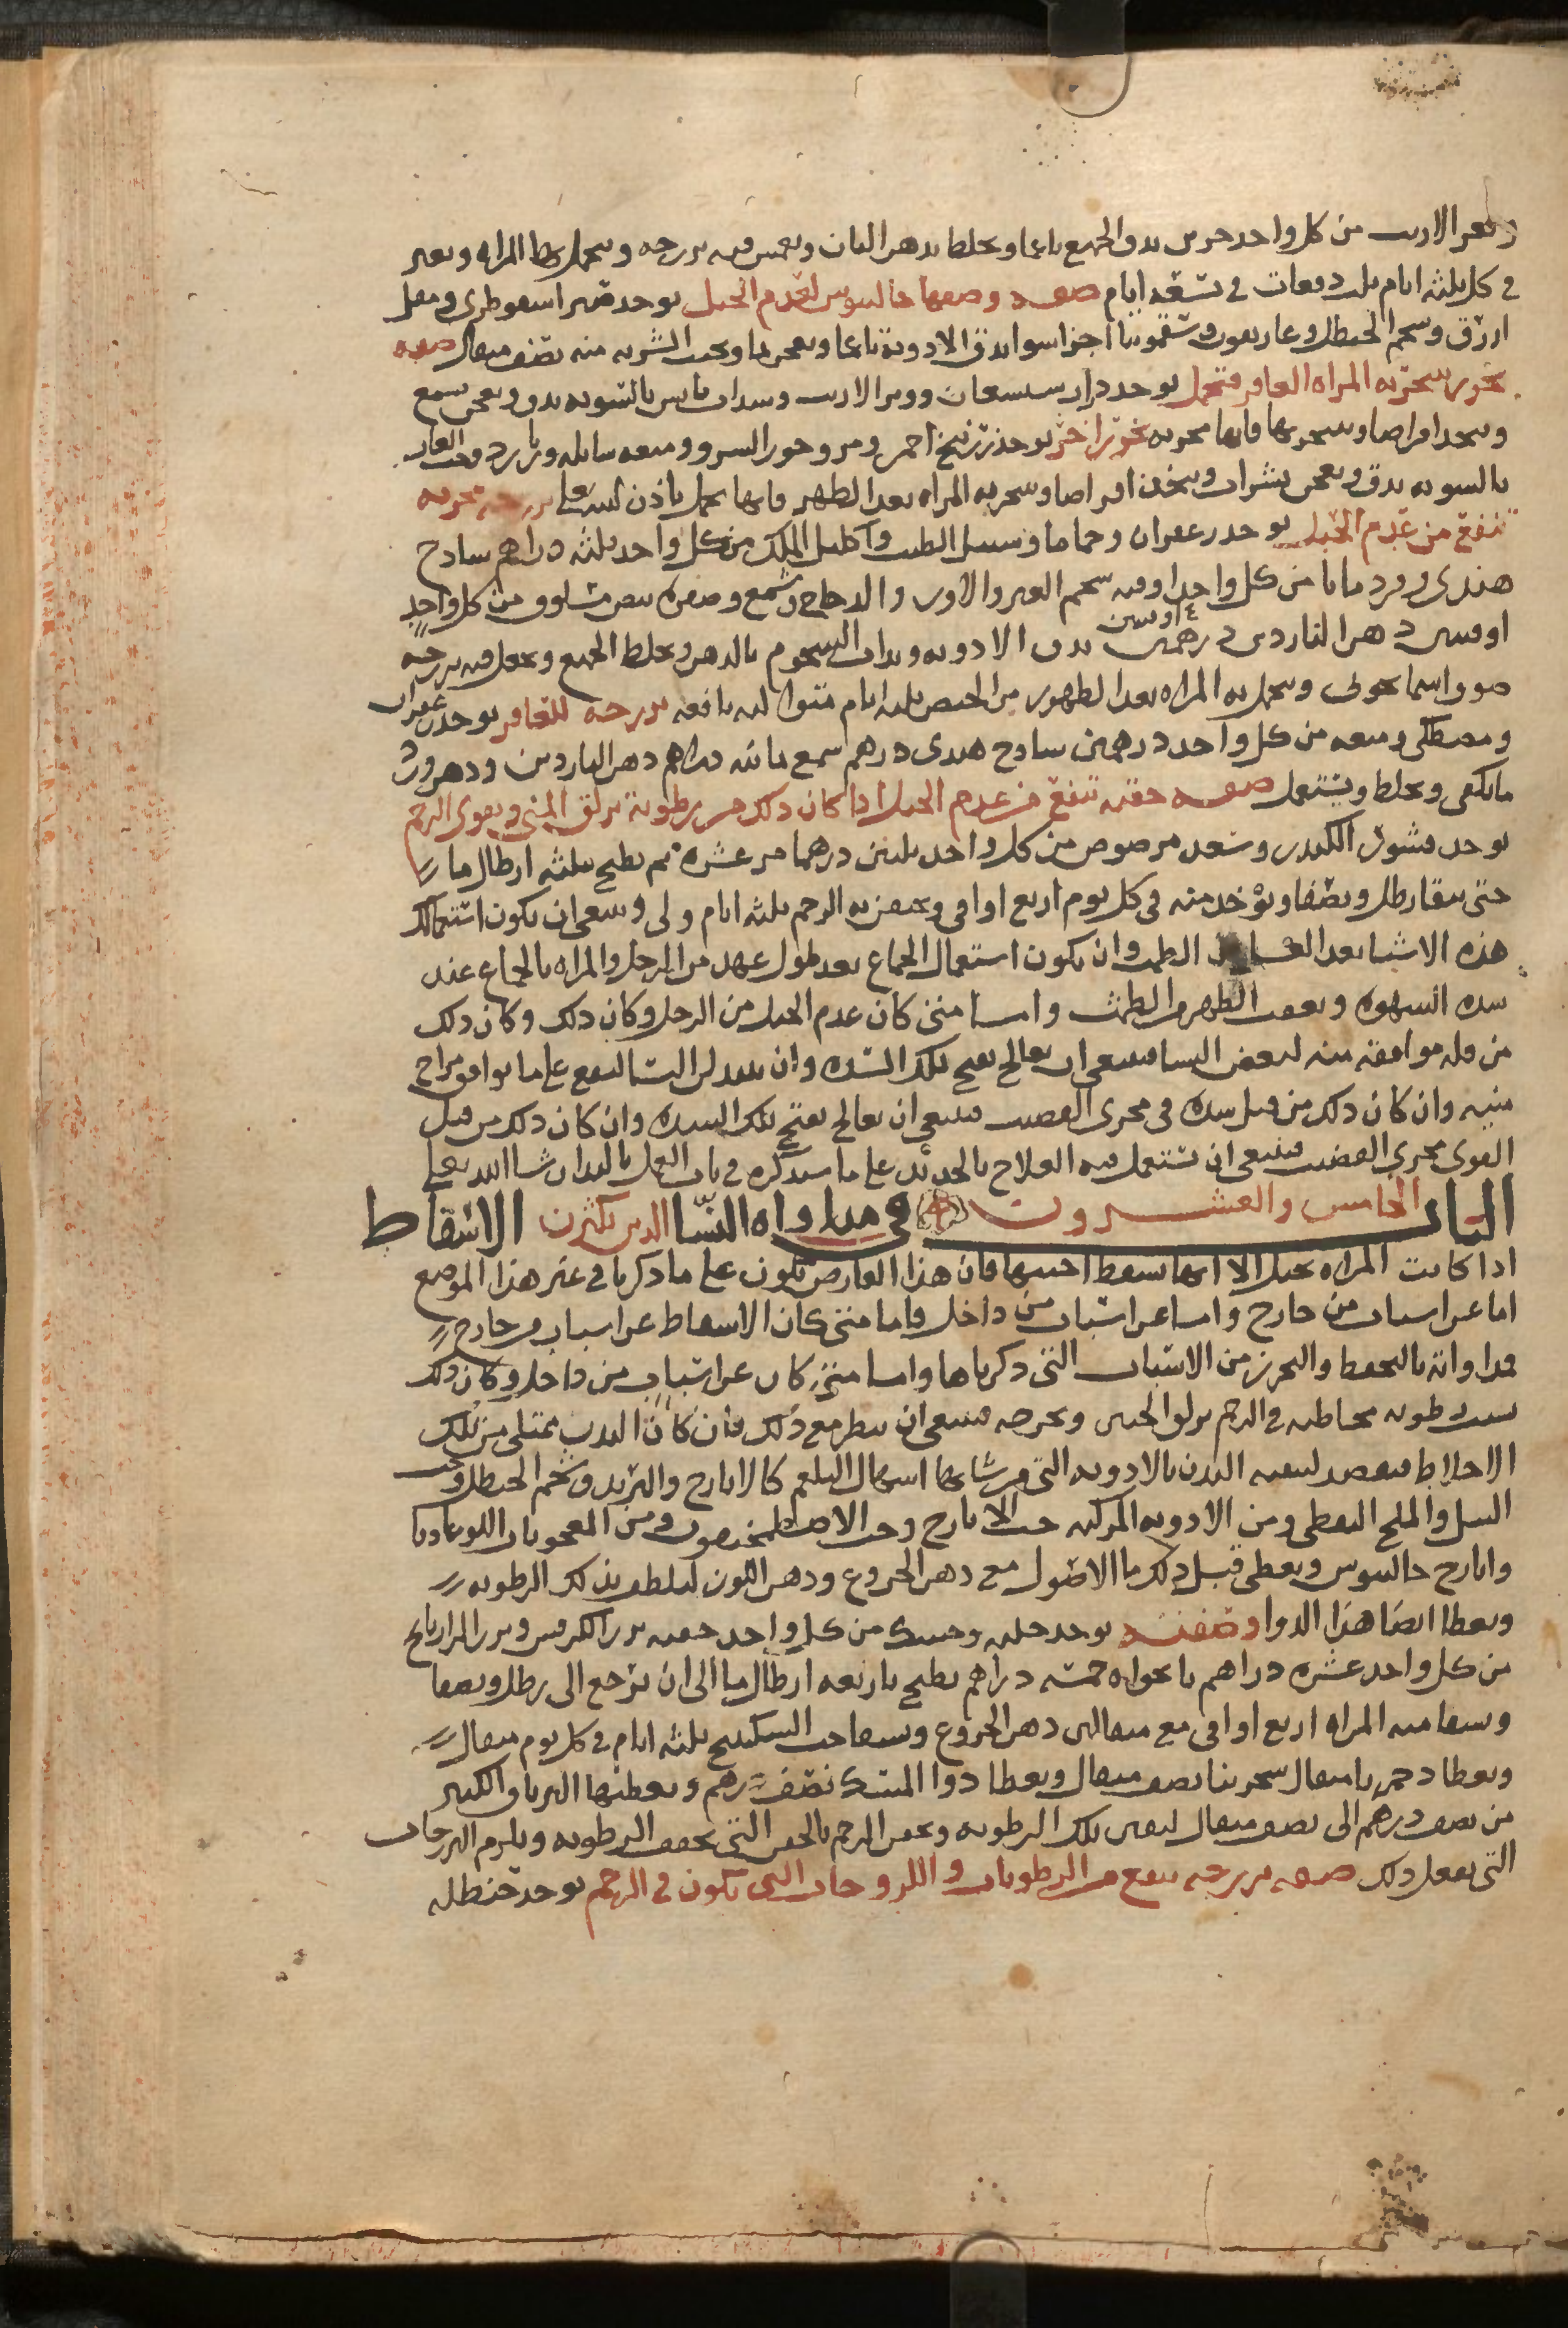 وبعر الارنب من كل واحد جزين يدق الجميع ناعما ويخلط بدهن البان ويغمس فيه برزجه وتتحمل بها المراه وتغير
في كل ثلثه ايام ثلث دفعات في تسعه ايام صفه وصفها جالينوس لعدم الحبل يوخذ صبر اسقوطرى ومقل
ازرق وشحم الحنظل وغاريقون وسقمونيا اجزا سوا تدق الادويه ناعما ويعجن بما ويحبب الشربه منه نصف مثقال صفه
بخور تتبخر به المراه العاقر فتحمل يوخذ دارسيسعان ووبر الارنب وسداب يابس بالسويه يدق ويعجن بميعه
ويتخذ اقراصا ويتبخر بها فانها مجربه بخور اخر يوخذ زرنيخ احمر ومر وجوز السرو وميعه سايله وبارزد وحب الغار
بالسويه يدق ويعجن بشراب ويتخذ اقراصا وتتبخر به المراه بعد الطهر فانها تحمل باذن الله تعلى برزجه مجربه
تنفع من عدم الحبل يوخذ زعفران وحماما وسنبل الطيب واكليل الملك من كل واحد ثلثه دراهم سادج
هندى وقردمانا من كل واحد اوقيه شحم البير والاوز والدجاج وشمع وصفره بيض مسلوق من كل واحد
اوقيتين دهن الناردين درهمين اوقيتين تدق الادويه وتذاب الشحوم بالدهن ويخلط الجميع ويجعل فيه برزجه
صوف اسمانجونى وتتحمل به المراه بعد الطهور من الحيض ثلثه ايام متواليه نافعه برزجه للعاقر يوخذ زعفران
ومصطكى وميعه من كل واحد درهمين سادج هندى درهم شمع ثمانيه دراهم دهن الناردين ودهن ورد
ما يكفى ويخلط ويستعمل صفه حقنه تنفع من عدم الحبل اذا كان ذلك من رطوبة تزلق المنى ويقوى الرحم
يوخذ قشور الكندر وسعد مرضوض من كل واحد ثلثين درهما مر عشره دم يطبخ بثلثه ارطال ما
حتى يبقا رطل ونصفا ويؤخذ منه في كل يوم اربع اواقى ويحقن به الرحم ثلثه ايام ولى وينبغى ان يكون استعمالك
هذه الاشيا بعد الطمث وان يكون استعمال الجماع بعد طول عهد من الرجل والمراه بالجماع عند
شده الشهوه وبعقب الطهر من الطمث واما متى كان عدم الحبل من الرجل وكان ذلك وكان ذلك
من قله موافقه منيه لبعض النسا فينبغى ان يعالج بفتح تلك السده وان يبدل النسا ليقع على ما يوافق مزاج
منيه وان كان ذلك من قبل سده في مجرى القضيب فينبغى ان يعالج بفتح تلك السده وان كان ذلك من قبل
القوى مجرى القضيب فينبغى ان تستعمل فيه العلاج بالحديد على ما سنذكره في باب العمل باليد ان شا الله تعلى
الباب الخامس والعشرون في مداواه النسا الذين يكثرن الاسقاط
اذا كانت المراه تحبل الا انها تسقط اجنتها فان هذا العارض يكون على ما ذكرنا في غير هذا الموضع
اما عن اسباب من خارج واما عن اسباب من داخل فاما متى كان الاسقاط عن اسباب من خارج
فمداواته بالتحفظ والتحرز من الاسباب التى ذكرناها واما متى كان عن اسباب من داخل وكان ذلك
بسبب رطوبه مخاطيه في الرحم تزلق الجنين وتخرجه فينبغى ان ينظر مع ذلك فان كان البدن ممتلى من تلك
الاخلاط فيقصد لتنقيه البدن بالادويه التى من شانها اسهال البلغم كالايارج والتربد وشحم الحنظل وحب
النيل والملح النفطى ومن الادويه المركبه حب الايارج وحب الاصطمخيقون ومن المعجونات اللوغاديا
وايارج جالينوس ويعطى قبل ذلك ما الاصول مع دهن الخروع ودهن اللوز ليلطف بذلك الرطوبه
ويعطا ايضا هذا الدوا وصفته يوخذ حلبه وحسك من كل واحد حفنه بزر الكرفس وبزر الرازيانج
من كل واحد عشره دراهم نانخواه خمسه دراهم يطبخ باربعه ارطال ما الى ان يرجع الى رطل ونصفا
ويسقا منه المراه اربع اواقى مع مثقالين دهن الخروع ويسقا حب السكبينج ثلثه ايام في كل يوم مثقال
ويعطا دحمرثا مثقال سجرينا نصف مثقال ويعطا دوا المسك نصف درهم ويعطيها الترياق الكبير
من نصف درهم الى نصف مثقال لتفنى تلك الرطوبه ويحقن الرحم بالحقن التى تجفف الرطوبه ويلزم البرزجات
التى تفعل ذلك صفه برزجه تنفع من الرطوبات واللزوجات التى تكون في الرحم يوخذ حنظله